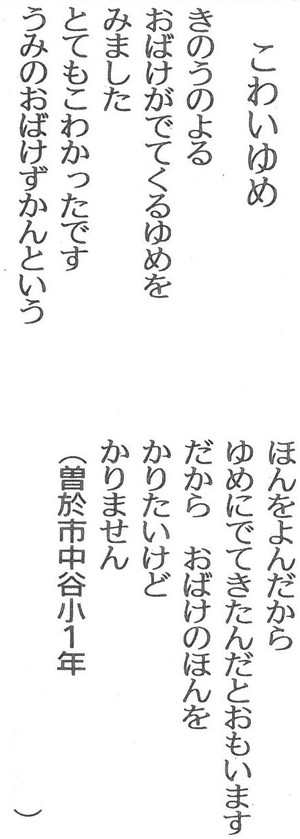 こわいゆめ
きのうのよる
おばけがでてくるゆめを
みました
とてもこわかったです
うみのおばけずかんという
ほんをよんだから
ゆめにでてきたんだとおもいます
だから　おばけのほんを
かりたいけど
かりません
（曽於市中谷小1年　　　）